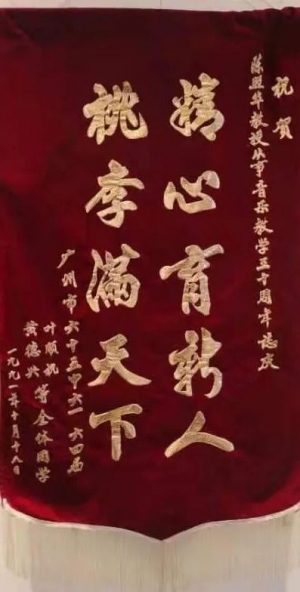 祝賀
陈华教授从事音乐教学五十周年誌庆
精心育新人
桃李满天下
广州市六十五中六一六四届
叶顺
黄德兴 等全体同学
一九九一年十月十八日